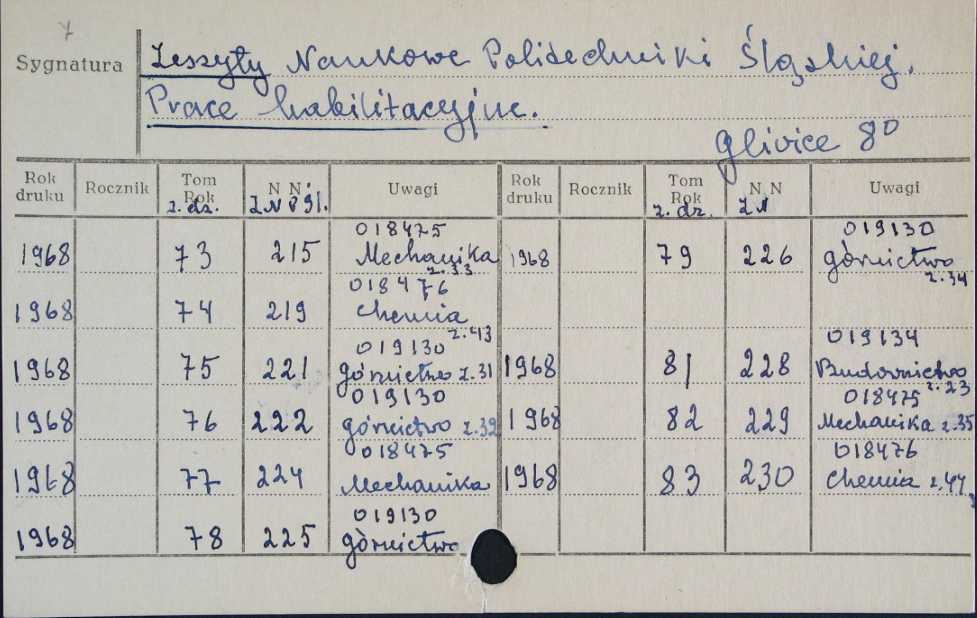 7
Sygnatura Zeszyty Naukowe Politechniki Śląskiej.
Prace habilitacyjne.
Gliwice 8°
Rok druku Rocznik Tom Rok z. dz. N N ZN PŚl. Uwagi Rok druku Rocznik Tom Rok z. dz. N N ZN Uwagi
1968 73 215 018475 Mechanika z.33 1968 79 226 019130 górnictwo z.34
1968 74 219 018476 Chemia z.43
1968 75 221 019130 górnictwo z.31 1968 81 228 019134 Budownictwo z.23
1968 76 222 019130 górnictwo z.32 1968 82 229 018475 Mechanika z.35
1968 77 224 018475 Mechanika 1968 83 230 018476 Chemia z.44
1968 78 225 019130 górnictwo